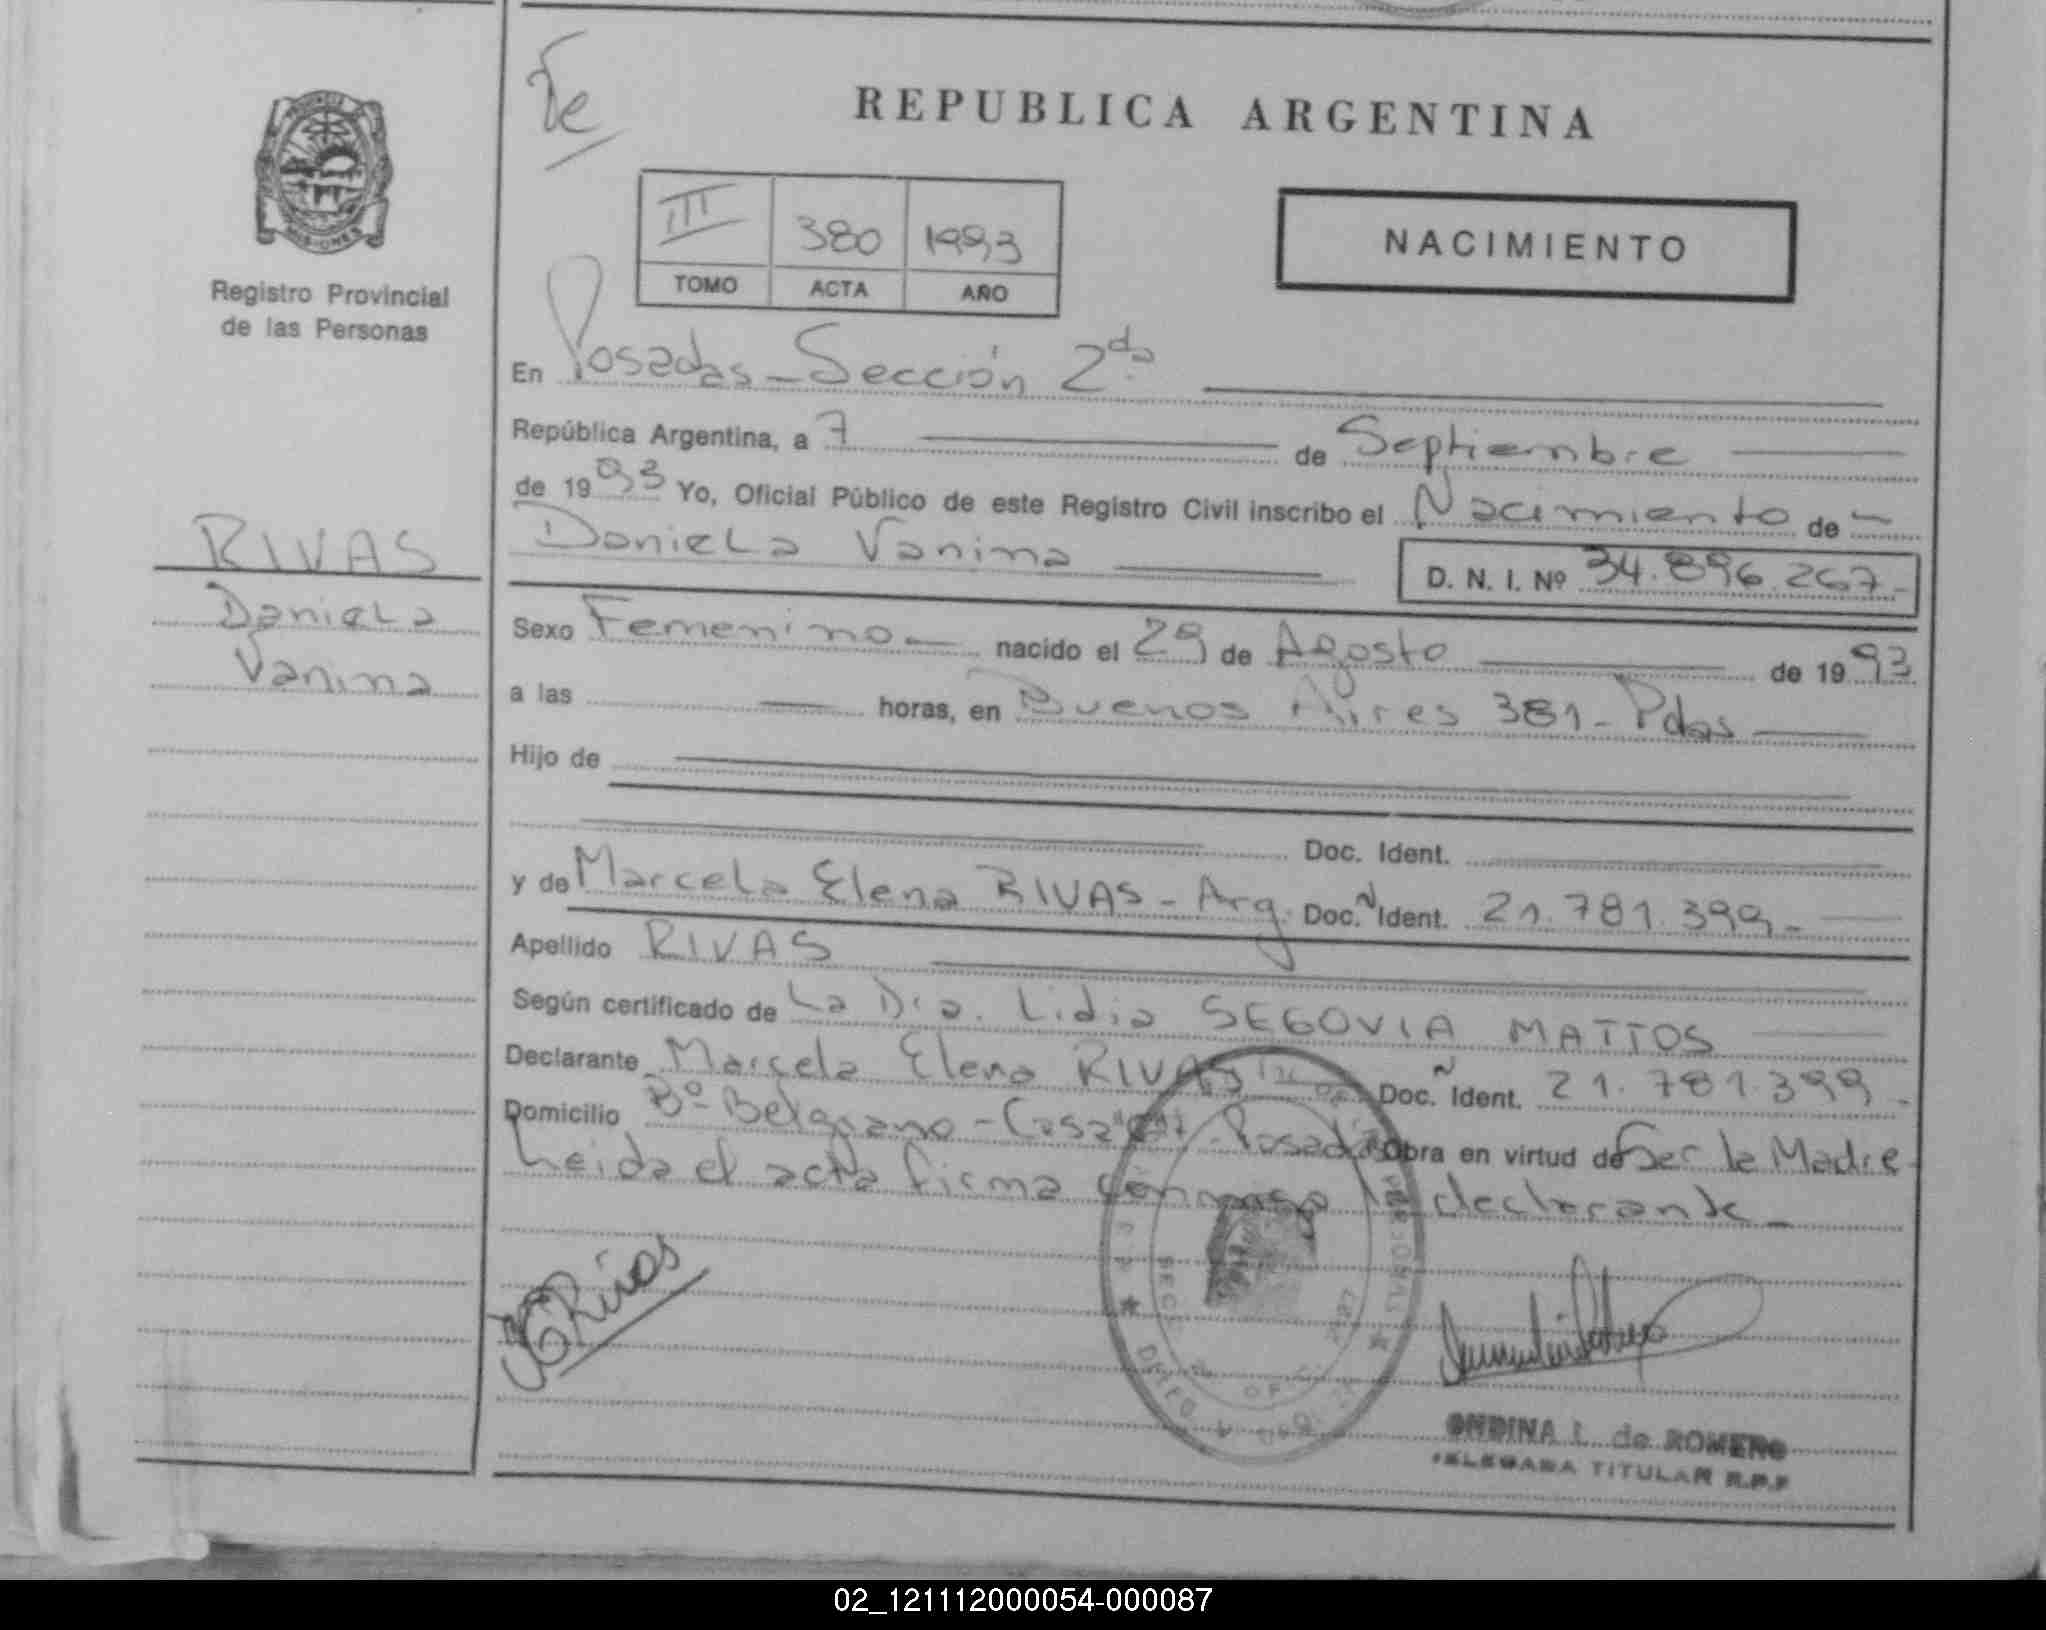 Te
REPUBLICA ARGENTINA
MISIONES
Registro Provincial
de las Personas
III 380 1993
TOMO ACTA AÑO
NACIMIENTO
En Posadas - Sección 2da
República Argentina, a 7 de Septiembre
de 1993 Yo, Oficial Público de este Registro Civil inscribo el Nacimiento de -
Daniela Vanina D. N. I. Nº 34.896.267.-
RIVAS
Daniela
Vanina
Sexo Femenino - nacido el 29 de Agosto de 1993
a las horas, en Buenos Aires 381 - Pdas
Hijo de
Doc. Ident.
y de Marcela Elena RIVAS - Arg. Doc. N Ident. 21.781.399.-
Apellido RIVAS
Según certificado de La Dra. Lidia SEGOVIA MATTOS
Declarante Marcela Elena RIVAS Doc. N Ident. 21.781.399.-
Domicilio Bº Belgrano - Casa Posadas Obra en virtud de Ser la Madre
Leida el acta firma conmigo la declarante -
Rivas
ONDINA L. de ROMERO
DELEGADA TITULAR R.P.P
02_121112000054-000087